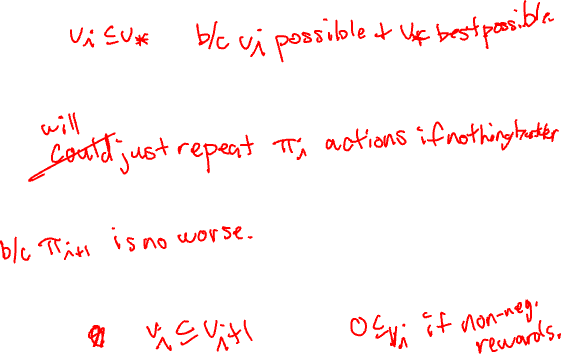 v_i ≤ v_* b/c v_i possible + v_* best possible
will
could just repeat π_i actions if nothing better
b/c π_{i+1} is no worse.
v_i ≤ v_{i+1} 0 ≤ v_i if non-neg. rewards.